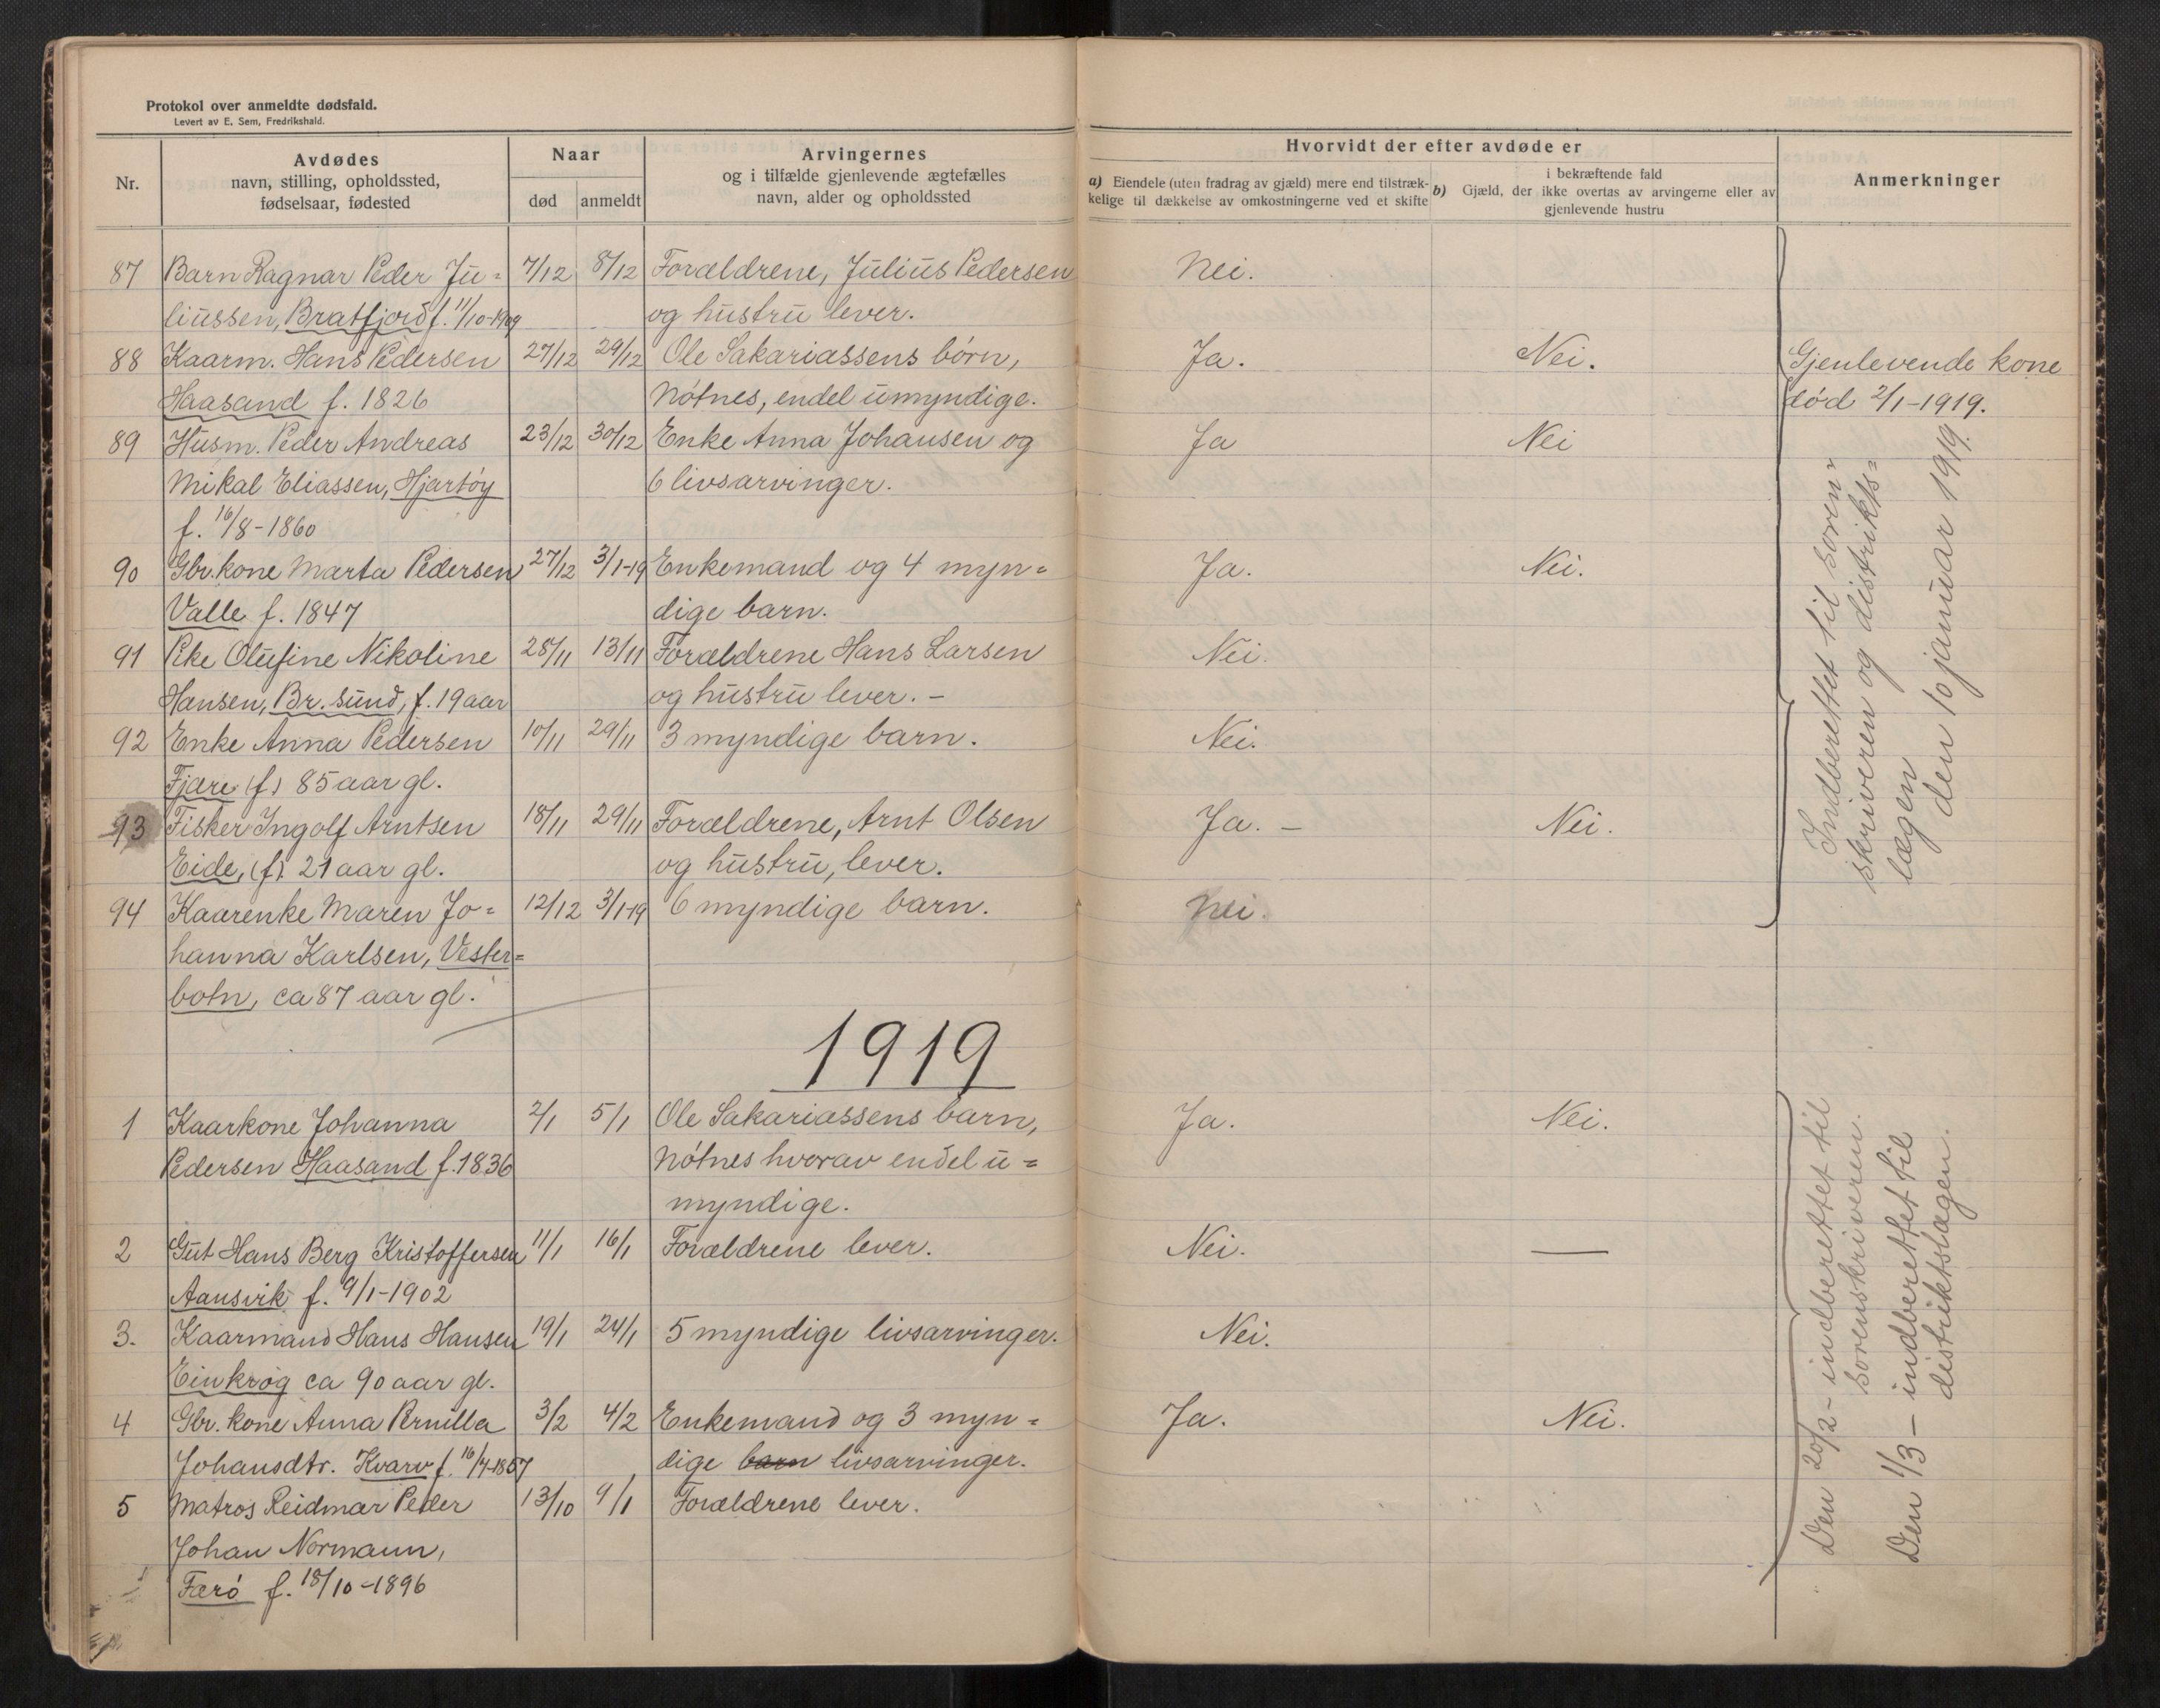 Protokol over anmeldte dødsfald.
Levert av E. Sem, Fredrikshald.
Nr.
Avdødes
navn, stilling, opholdssted,
fødselsaar, fødested
Naar
død
anmeldt
Arvingernes
og i tilfælde gjenlevende ægtefælles
navn, alder og opholdssted
Hvorvidt der efter avdøde er
a) Eiendele (uten fradrag av gjæld) mere end tilstræk-
kelige til dækkelse av omkostningerne ved et skifte
i bekræftende fald
b) Gjæld, der ikke overtas av arvingerne eller av
gjenlevende hustru
Anmerkninger
87 Barn Ragnar Peder Ju= 7/12 8/12 Forældrene, Julius Pedersen Nei.
liussen, Bratfjord f. 11/10-1909 og hustru lever.
88 Kaarm. Hans Pedersen 27/12 29/12 Ole Sakariassens børn, Ja. Nei. Gjenlevende kone
Haasand f. 1826 Nøtnes, endel umyndige. død 2/1-1919.
89 Husm. Peder Andreas 23/12 30/12 Enke Anna Johansen og Ja Nei
Mikal Eliassen, Hjartøy 6 livsarvinger.
f. 16/8-1860
90 Gbr. kone Marta Pedersen 27/12 3/1-19 Enkemand og 4 myn= Ja. Nei.
Valle f. 1847 dige barn.
91 Pike Olufine Nikoline 28/11 13/11 Forældrene Hans Larsen Nei.
Hansen, Br. sund, f. 19 aar og hustru lever. -
92 Enke Anna Pedersen 10/11 29/11 3 myndige barn. Nei.
Fjære (f) 85 aar gl.
93 Fisker Ingolf Arntsen 18/11 29/11 Forældrene, Arnt Olsen Ja. - Nei.
Eide, (f). 21 aar gl. og hustru, lever.
94 Kaarenke Maren Jo= 12/12 3/1-19 6 myndige barn. Nei.
hanna Karlsen, Vester=
botn, ca 87 aar gl.
Indberettet til soren=
skriveren og distrikts=
lægen
den 10 januar 1919.
1919
1 Kaarkone Johanna 2/1 5/1 Ole Sakariassens barn, Ja. Nei.
Pedersen Haasand f. 1836 Nøtnes hvorav endel u=
myndige.
2 Gut Hans Berg Kristoffersen 11/1 16/1 Forældrene lever. Nei. —
Aansvik f. 9/1-1902
3. Kaarmand Hans Hansen 19/1 24/1 5 myndige livsarvinger. Nei.
Einkrog ca 90 aar gl.
4 Gbr. kone Anna Pernilla 3/2 4/2 Enkemand og 3 myn= Ja. Nei.
Johansdtr. Kvarv f. dige barn livsarvinger.
5 Matros Reidmar Peder 13/10 9/1 Forældrene lever.
Johan Normann,
Færø f. 18/10-1896
Den 20/2 - indberettet til
sorenskriveren.
Den 1/3 - indberettet til
distriktslægen.